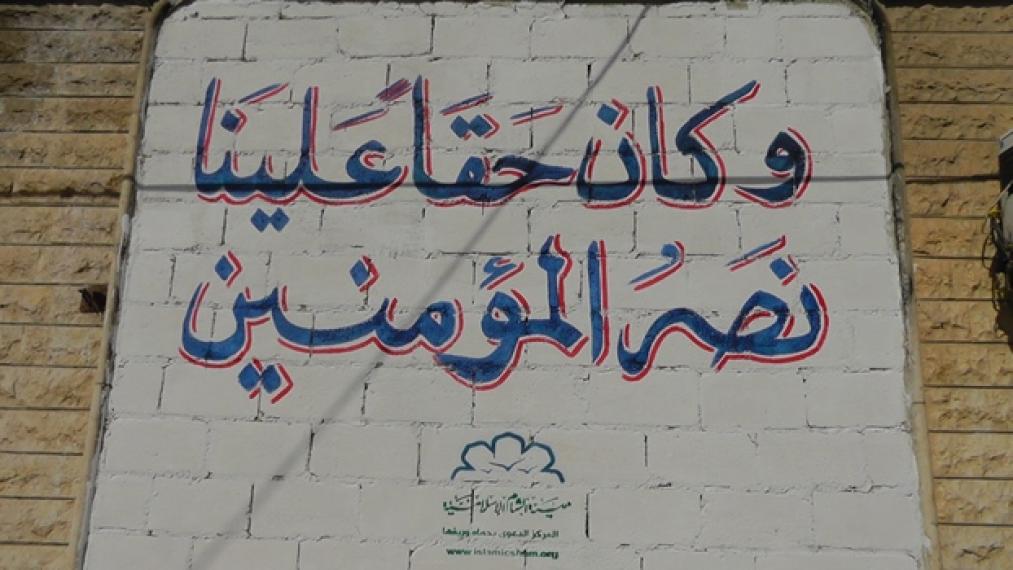 وكان حقاً علينا
نصرُ المؤمنين
هيئة الشام الإسلامية
المركز الدعوي بحماه وريفها
www.islamicsham.org